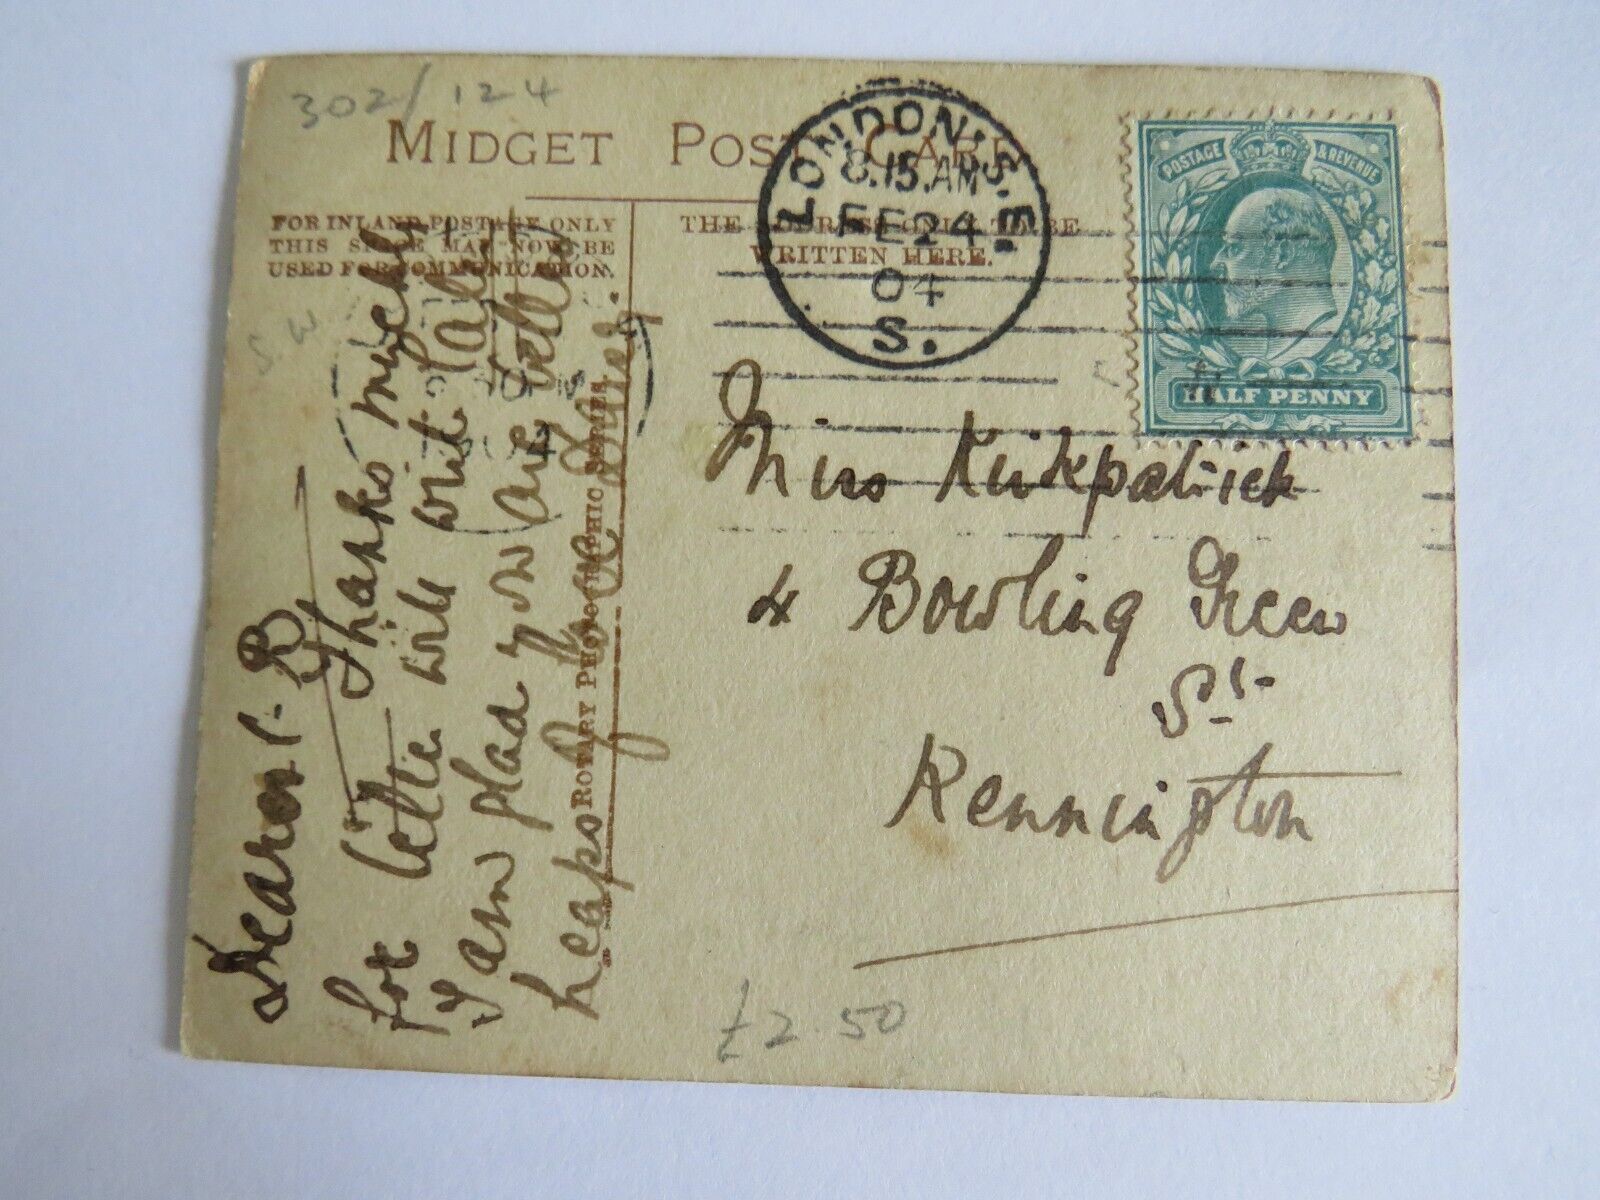 302/124
MIDGET POST CARD
FOR INLAND POSTAGE ONLY
THIS SPACE MAY NOW BE
USED FOR COMMUNICATION.
THE ADDRESS ONLY TO BE
WRITTEN HERE.
LONDON, S.E.
8.15.AM
FE 24
04
S.
POSTAGE & REVENUE
HALF PENNY
S.W
Miss Kirkpatrick
4 Bowling Green
St
Kennington
Dearest B
Thanks
for letter will write later
I am glad you are better
heaps of love
ROTARY PHOTOGRAPHIC SERIES.
£2.50